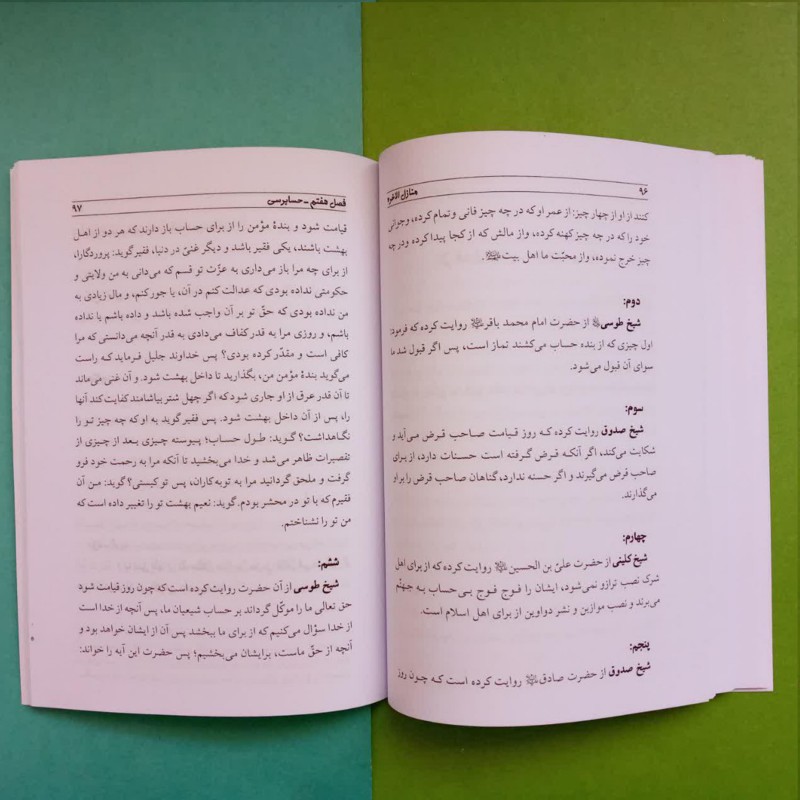 ۹۶
منازل الآخره
کنند از او از چهار چیز: از عمر او که در چه چیز فانی و تمام کرده، وجوانی
خود را که در چه چیز کهنه کرده، و مالش که از کجا پیدا کرده ودر چه
چیز خرج نموده، واز محبّت ما اهل بیت
دوم:
شیخ طوسی از حضرت امام محمد باقر روایت کرده که فرمود:
اول چیزی که از بنده حساب می‌کشند نماز است، پس اگر قبول شد ما
سوای آن قبول می‌شود.
سوم:
شیخ صدوق روایت کرده که روز قیامت صاحب قرض می‌آید و
شکایت می‌کند، اگر آنکه قرض گرفته است حسنات دارد، از برای
صاحب قرض می‌گیرند و اگر حسنه ندارد، گناهان صاحب قرض را بر او
می‌گذارند.
چهارم:
شیخ کلینی از حضرت علیّ بن الحسین روایت کرده که از برای اهل
شرک نصب ترازو نمی‌شود، ایشان را فوج فوج بی‌حساب به جهنّم
می‌برند و نصب موازین و نشر دواوین از برای اهل اسلام است.
پنجم:
شیخ صدوق از حضرت صادق روایت کرده است که چون روز
فصل هفتم - حسابرسی
۹۷
قیامت شود و بندهٔ مؤمن را از برای حساب باز دارند که هر دو از اهل
بهشت باشند، یکی فقیر باشد و دیگر غنی در دنیا، فقیر گوید: پروردگارا،
از برای چه مرا باز می‌داری به عزّت تو قسم که می‌دانی به من ولایتی و
حکومتی نداده بودی که عدالت کنم در آن، یا جور کنم، و مال زیادی به
من نداده بودی که حقّ تو بر آن واجب شده باشد و داده باشم یا نداده
باشم، و روزی مرا به قدر کفاف می‌دادی به قدر آنچه می‌دانستی که مرا
کافی است و مقدّر کرده بودی؟ پس خداوند جلیل فرماید که راست
می‌گوید بندهٔ مؤمن من، بگذارید تا داخل بهشت شود. و آن غنی می‌ماند
تا آن قدر عرق از او جاری شود که اگر چهل شتر بیاشامند کفایت کند آنها
را، پس از آن داخل بهشت شود. پس فقیر گوید به او که چه چیز تو را
نگاهداشت؟ گوید: طول حساب؛ پیوسته چیزی بعد از چیزی از
تقصیرات ظاهر می‌شد و خدا می‌بخشید تا آنکه مرا به رحمت خود فرو
گرفت و ملحق گردانید مرا به توبه‌کاران، پس تو کیستی؟ گوید: من آن
فقیرم که با تو در محشر بودم. گوید: نعیم بهشت تو را تغییر داده است که
من تو را نشناختم.
ششم:
شیخ طوسی از آن حضرت روایت کرده است که چون روز قیامت شود
حق تعالی ما را موکّل گرداند بر حساب شیعیان ما، پس آنچه از خدا است
از خدا سؤال می‌کنیم که از برای ما ببخشد پس آن از ایشان خواهد بود و
آنچه از حقّ ماست، برایشان می‌بخشیم؛ پس حضرت این آیه را خواند: